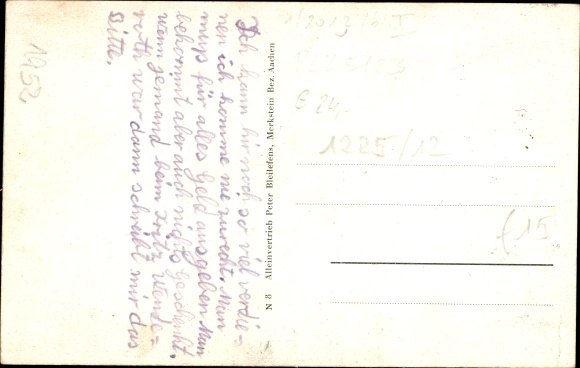 Ich kann hir noch so viel verdie=
nen ich komme nie zurecht. Man
mus für alles Geld ausgeben Man
bekommt aber auch nichts geschenkt.
wenn jemand beim Fritz Wende=
roth war dann schreibt mir das
Bitte.
1952.
N 8 Alleinvertrieb Peter Bleilefens, Merkstein Bez. Aachen
€ 24,-
1225/12
£15